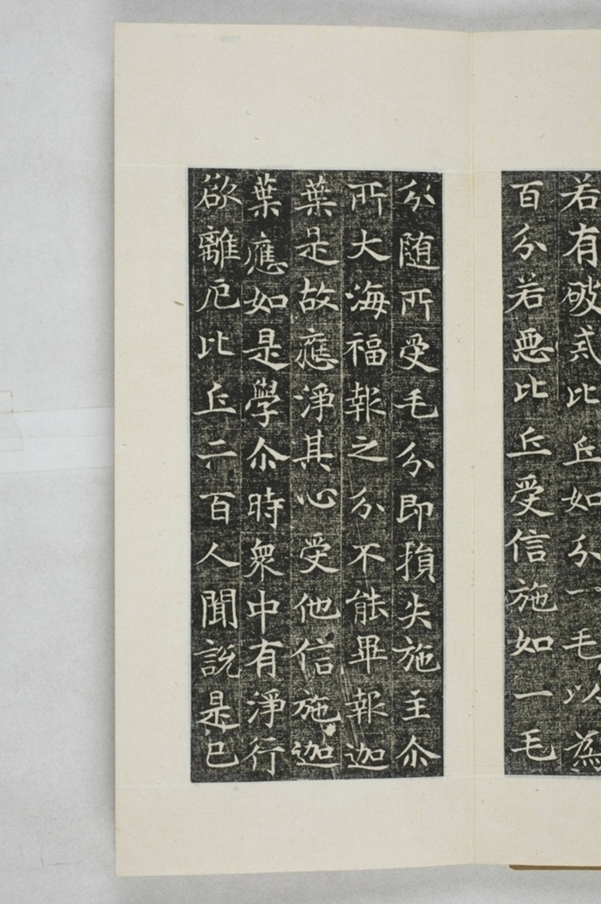 若有破戒比丘如分一毛以為
百分若惡比丘受信施如一毛
分随所受毛分即損失施主尒
所大海福報之分不能畢報迦
葉是故應淨其心受他信施迦
葉應如是學尒時衆中有淨行
欲離厄比丘二百人聞説是已